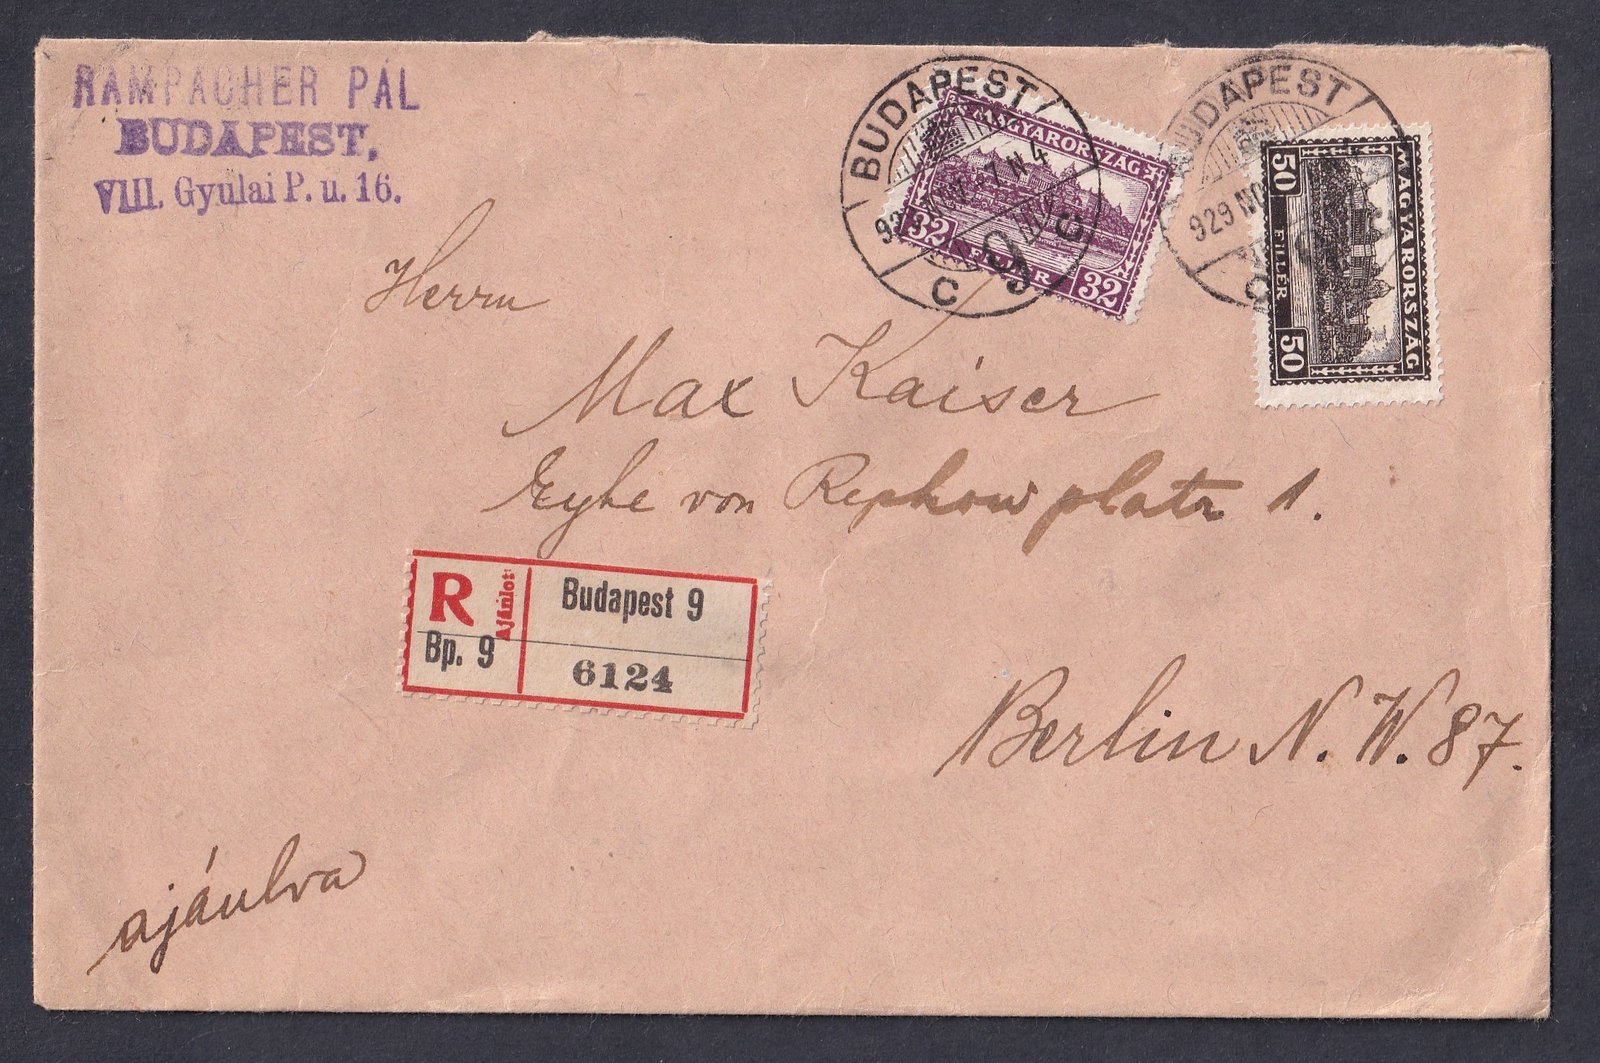 RAMPACHER PÁL
BUDAPEST,
VIII. Gyulai P. u. 16.
BUDAPEST
9
C
MAGYARORSZÁG
32 FILLÉR 32
BUDAPEST
929 NO
MAGYARORSZÁG
50 FILLÉR 50
Herrn
Max Kaiser
Eyke von Repkow platz 1.
R Ajánlot
Bp. 9
Budapest 9
6124
Berlin N. W. 87.
ajánlva